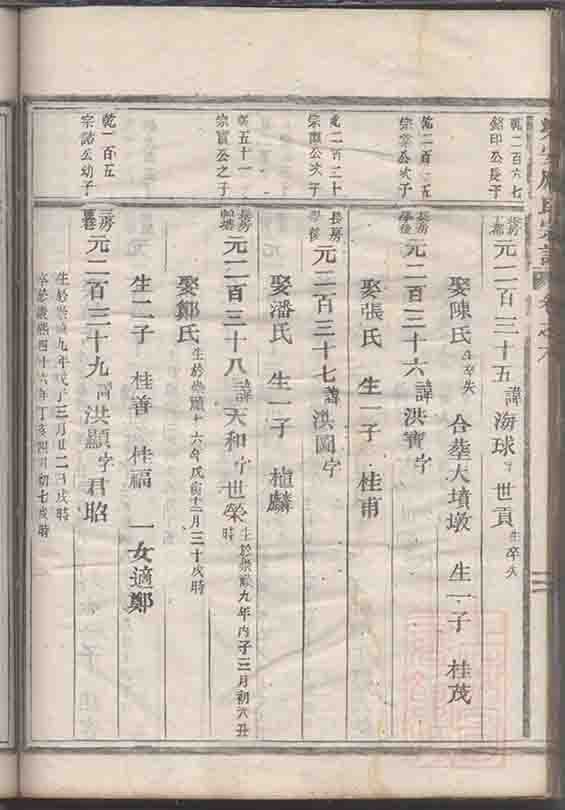 乾二百六七
銘印公長子
長房
元二百三十五諱海球字世貢生卒失
娶陳氏生卒失 合塟大墳墩 生一子 桂茂
乾二百 五
宗 公次子
長房
學後
元二百三十六諱洪寶字
娶張氏 生一子 桂甫
乾二百三十
宗 公次子
長房
學後
元二百三十七諱洪圖字
娶潘氏 生一子 植麟
乾五十一
宗寳公之子
長房
元二百三十八諱天和字世榮生於崇禎九年丙子三月初六丑
時
娶鄭氏生於崇禎十六年 月三十戌時
生二子 桂善 桂福 一女適鄭
乾一百五
宗諮公幼子
三房
元二百三十九諱洪顯字君昭
生於 九年戊子三月廿二日戌時
卒於康熙四十六年丁亥四月初七戌時